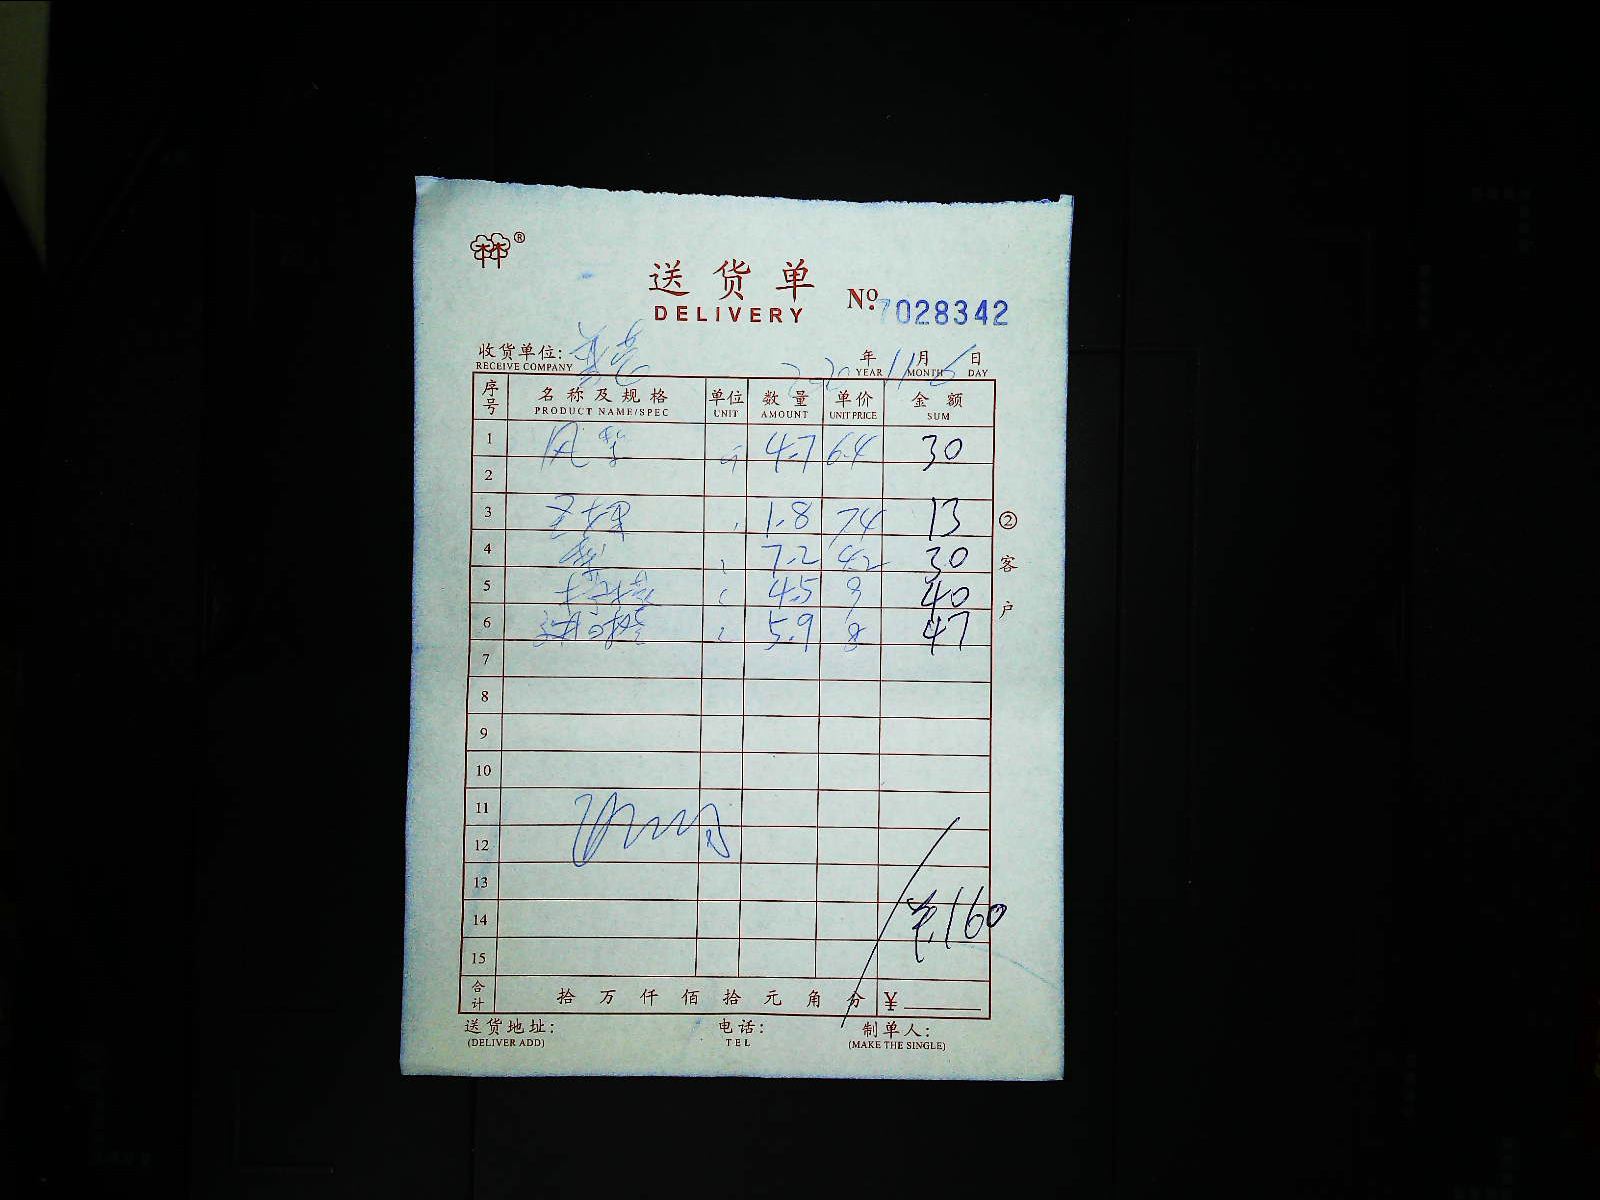 林®
送货单
DELIVERY
No. 7028342
收货单位:
RECEIVE COMPANY
2020 年 11 月 5 日
YEAR MONTH DAY
序号 名称及规格 单位 数量 单价 金额
PRODUCT NAME/SPEC UNIT AMOUNT UNIT PRICE SUM
1 4.7 6.4 30
2
3 1.8 74 13
4 7.2 4.2 30
5 4.5 9 40
6 5.9 8 47
7
8
9
10
11
12
13
14 ¥160
15
合计 拾 万 仟 佰 拾 元 角 分 ¥
②客户
送货地址: 电话: 制单人:
(DELIVER ADD) TEL (MAKE THE SINGLE)